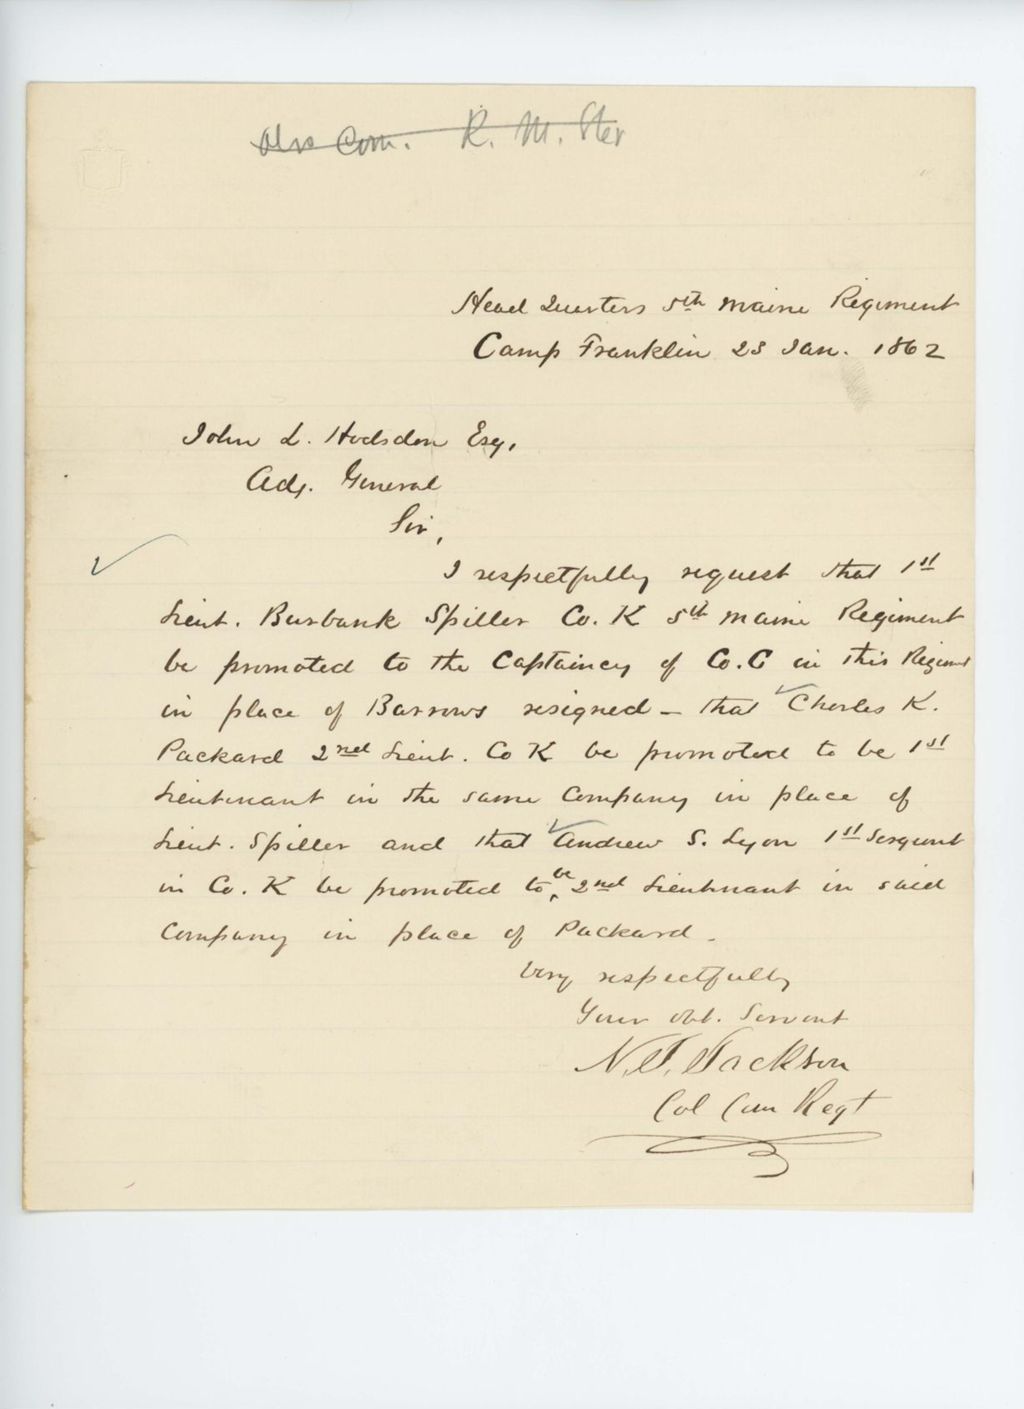 Com. R. M.
Head Quarters 5th Maine Regiment
Camp Franklin 23 Jan. 1862
John L. Hodsdon Esq,
Adj. General
Sir,
I respectfully request that 1st
Lieut. Burbank Spiller Co. K 5th Maine Regiment
be promoted to the Captaincy of Co. C in this Regiment
in place of Barrows resigned - that Charles K.
Packard 2nd Lieut. Co K be promoted to be 1st
Lieutenant in the same Company in place of
Lieut. Spiller and that Andrew S. Lyon 1st Sergeant
in Co. K be promoted to be 2nd Lieutenant in said
Company in place of Packard.
Very respectfully
Your obt. Servant
N. J. Jackson
Col Com Regt